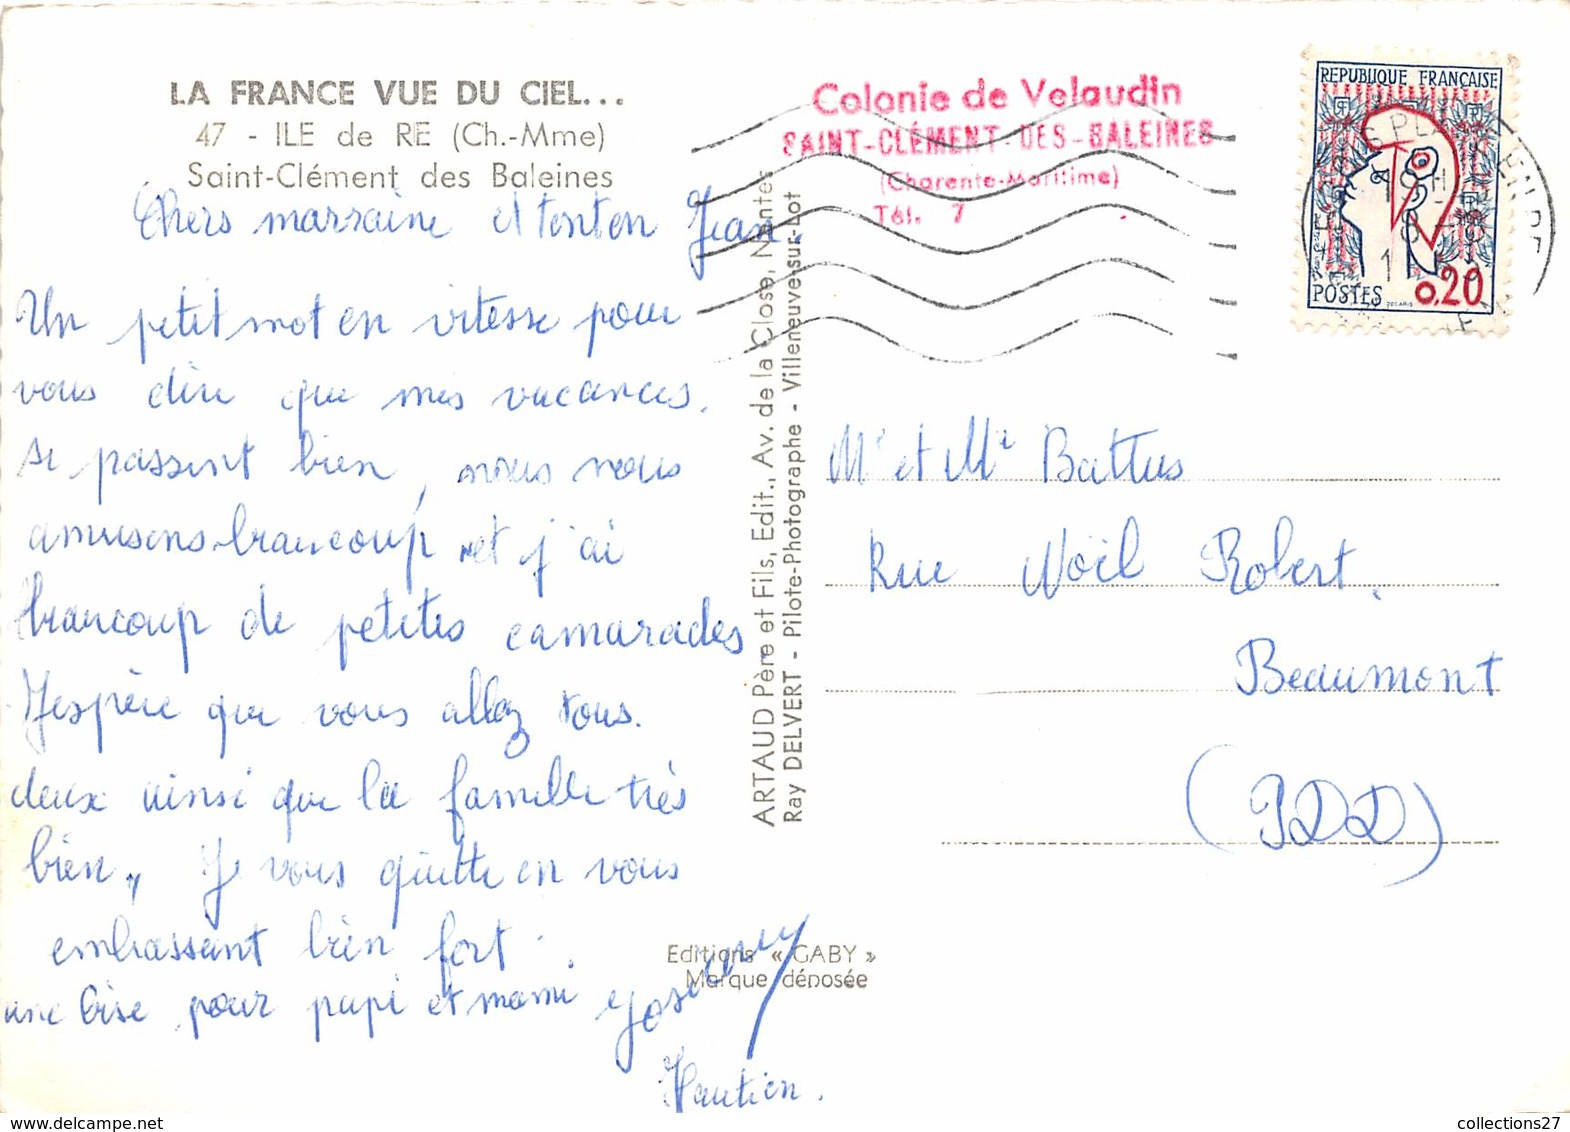 LA FRANCE VUE DU CIEL...
47 - ILE de RE (Ch.-Mme)
Saint-Clément des Baleines
Chers marraine et tonton Jean.
Un petit mot en vitesse pour
vous dire que mes vacances.
se passent bien, nous nous
amusons beaucoup et j'ai
beaucoup de petites camarades.
J'espère que vous allez tous.
deux ainsi que la famille très
bien,, Je vous quitte en vous
embrassant bien fort.
une bise pour papi et mami
ARTAUD Père et Fils, Edit., Av. de la Close, Nantes
Ray DELVERT - Pilote-Photographe - Villeneuve-sur-Lot
Editions « GABY »
Marque déposée
Colonie de Velaudin
SAINT-CLÉMENT-DES-BALEINES
(Charente-Maritime)
Tél. 7
REPUBLIQUE FRANÇAISE
POSTES 0,20
DECARIS
Mr et Me Battus
Rue Noël Robert.
Beaumont
(PDD)
collections27